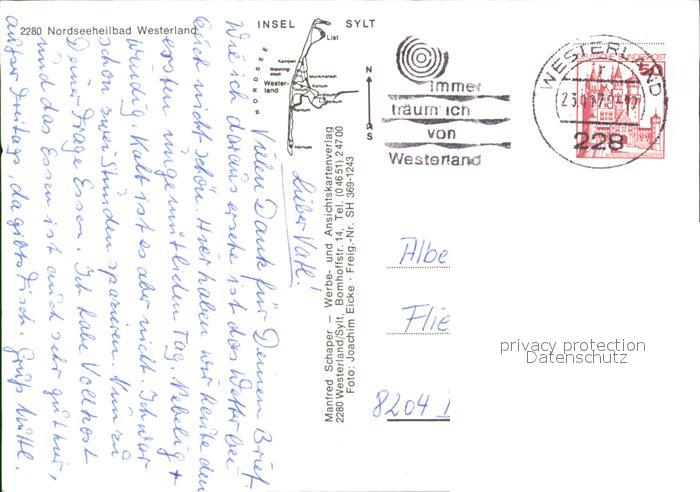 2280 Nordseeheilbad Westerland
INSEL SYLT
List
Kampen
Westerland
Munkmarsch
Keitum
Morsum
Rantum
Hörnum
NORDSEE
N
S
Immer
träum ich
von
Westerland
WESTERLAND
228
Lieber Vatl!
Vielen Dank für Deinen Brief.
Wie ich daraus ersehe ist das Wetter bei
Euch nicht schön. Hier haben wir heute den
ersten ungemütlichen Tag. Nebelig +
windig. Kalt ist es aber nicht. Ich war
schon zwei Stunden spazieren. Nun zu
Deiner Frage Essen. Ich habe Vollkost
und das Essen ist auch sehr gut hier,
außer Freitags, da gibts Fisch. Gruß Muttl.
Manfred Schaper – Werbe- und Ansichtskartenverlag
2280 Westerland/Sylt, Bomhoffstr. 14, Tel. (04651) 24700
Foto: Joachim Eicke · Freig.-Nr. SH 369-1243
Albe
Flie
8204
privacy protection
Datenschutz